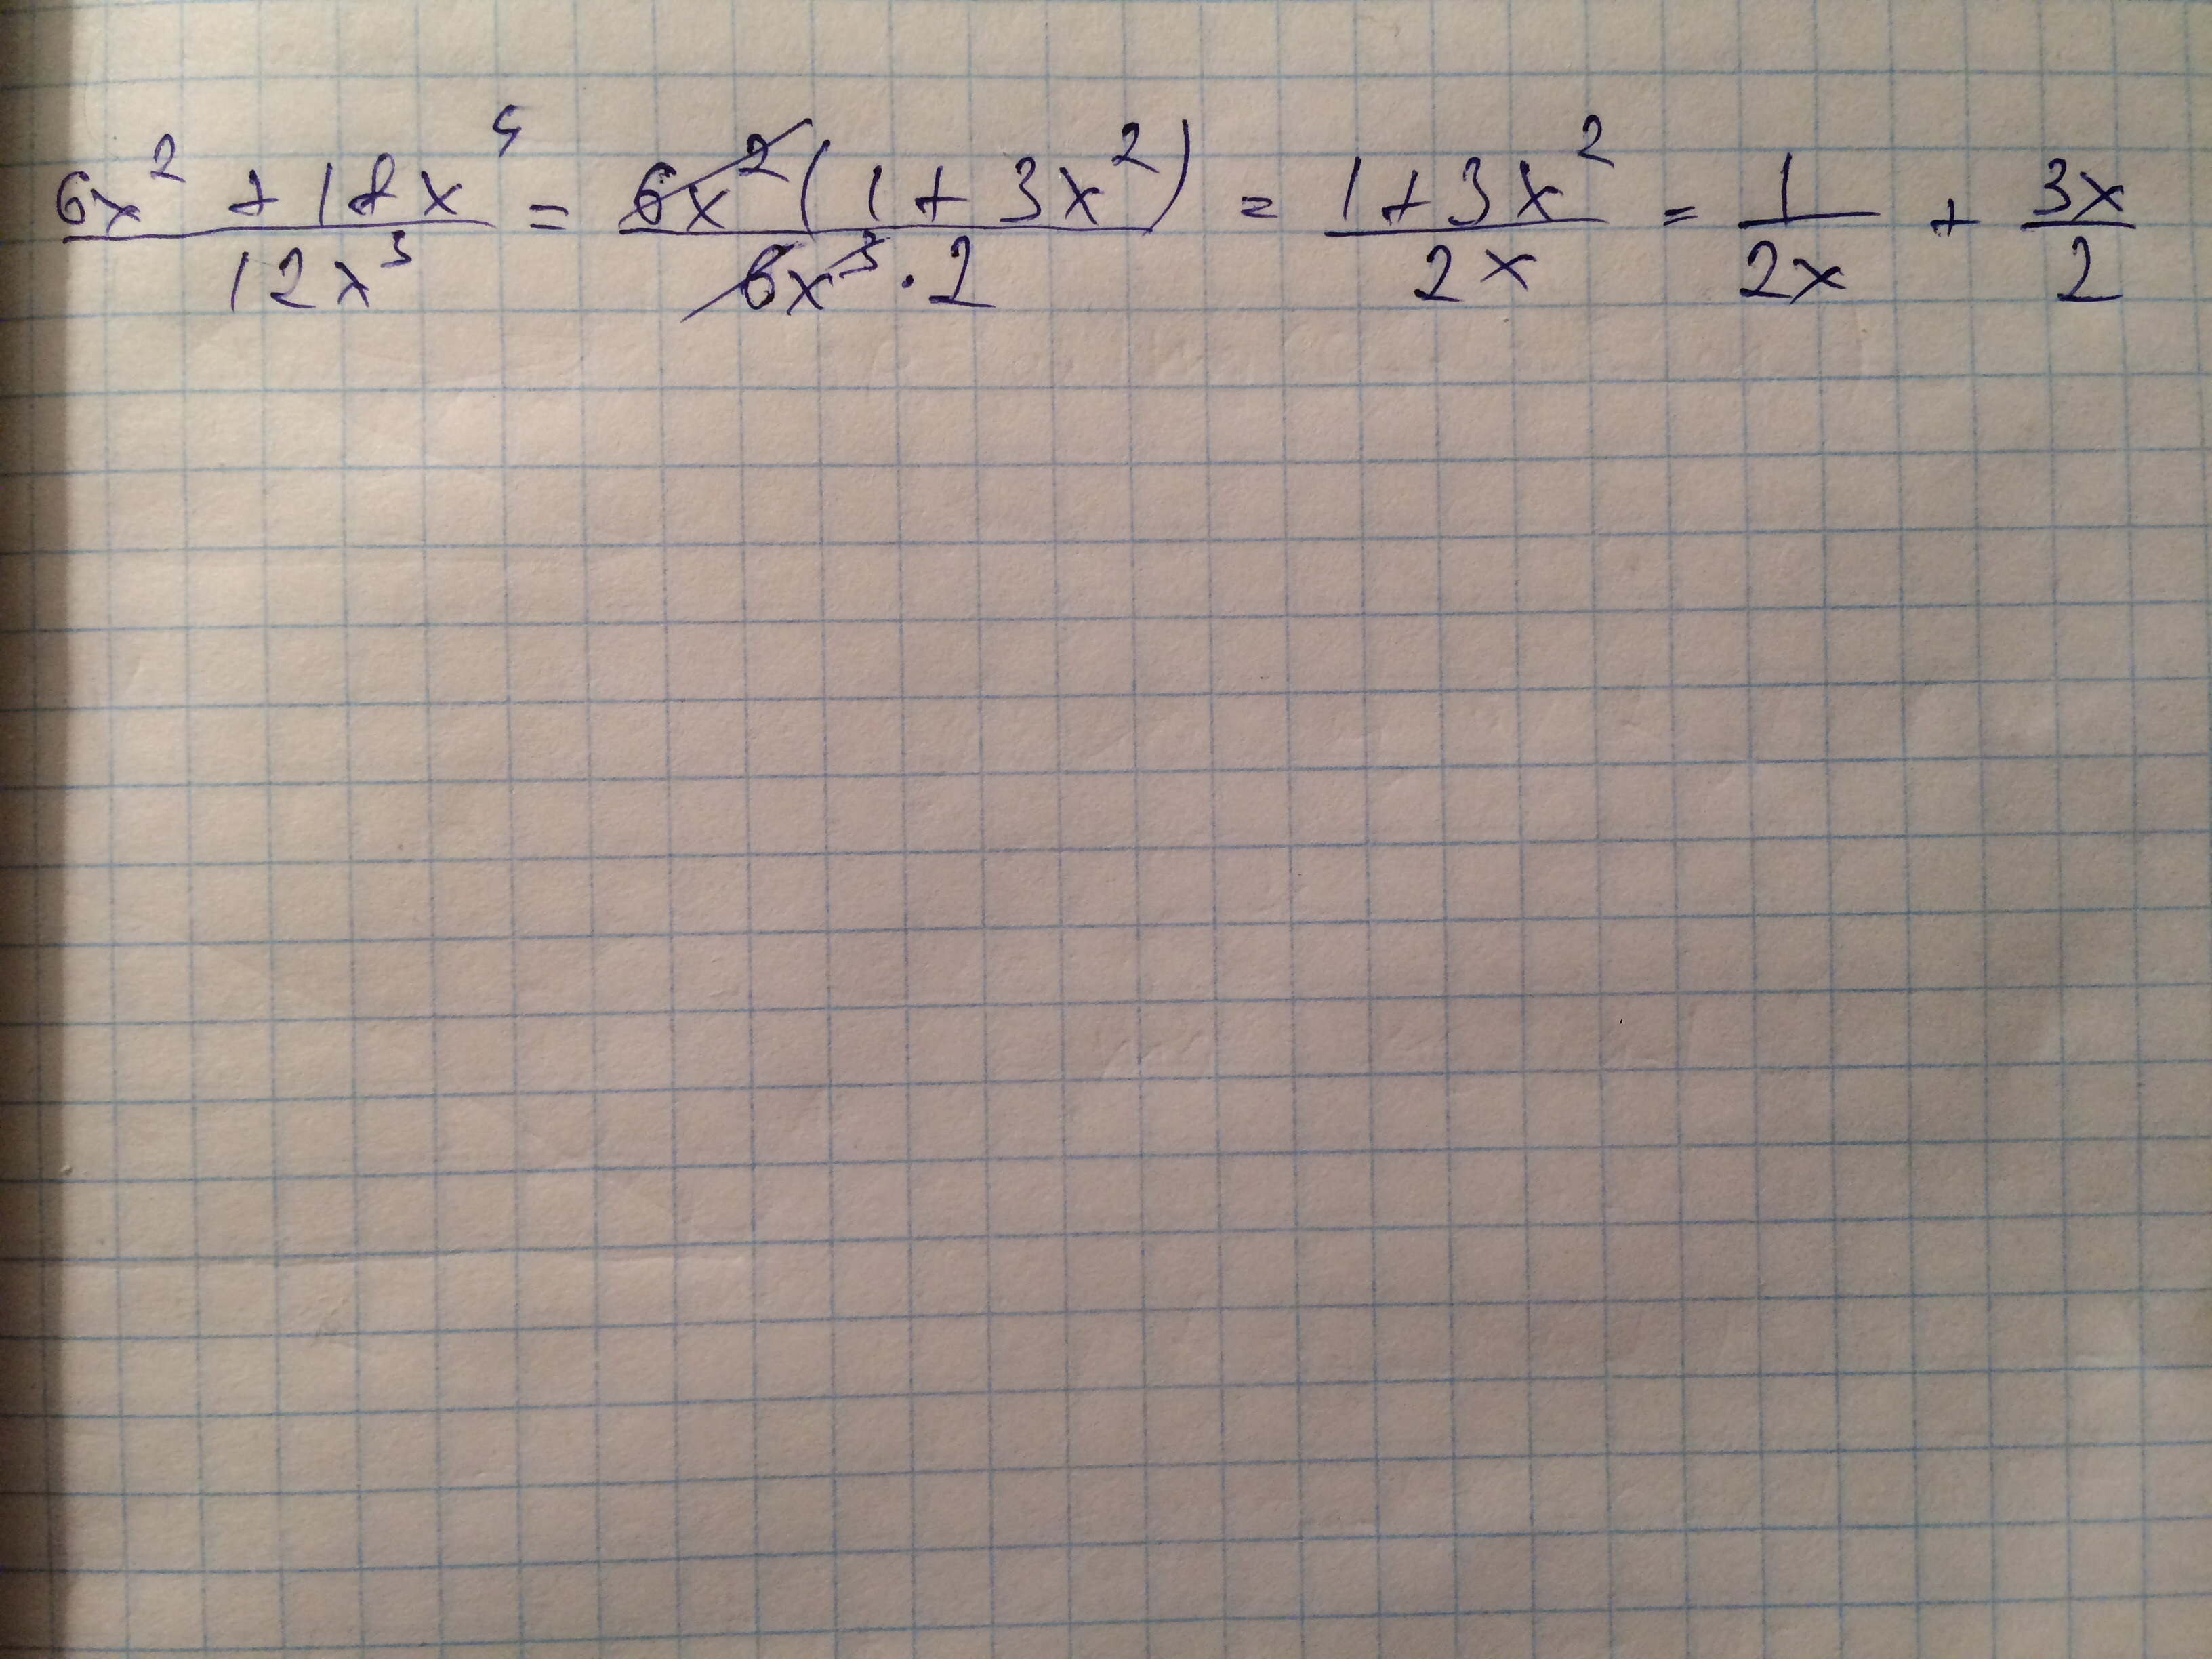 (6x² + 18x⁴)/(12x³) = (6x²(1 + 3x²))/(6x³ · 2) = (1 + 3x²)/(2x) = 1/(2x) + (3x)/2